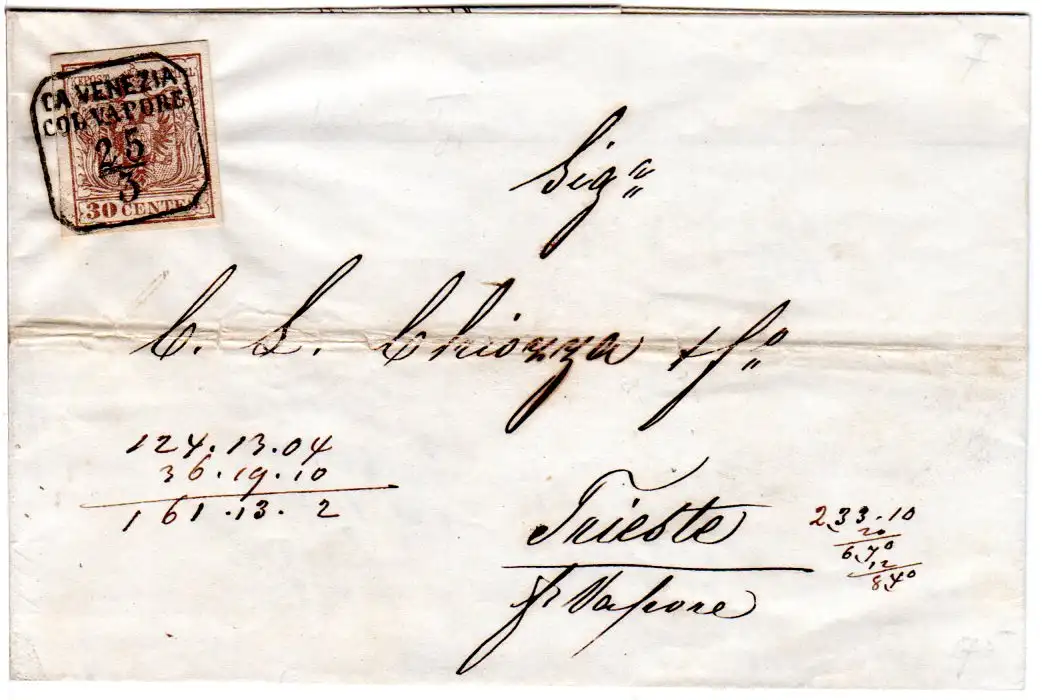 DA VENEZIA
COL VAPORE
25
3
30 CENTES.
Sigʳⁱ
C. L. Chiozza & fº
124.13.04
36.19.10
161.13.2
Trieste
pʳ Vapore
233.10
20
6.70
12
8.40